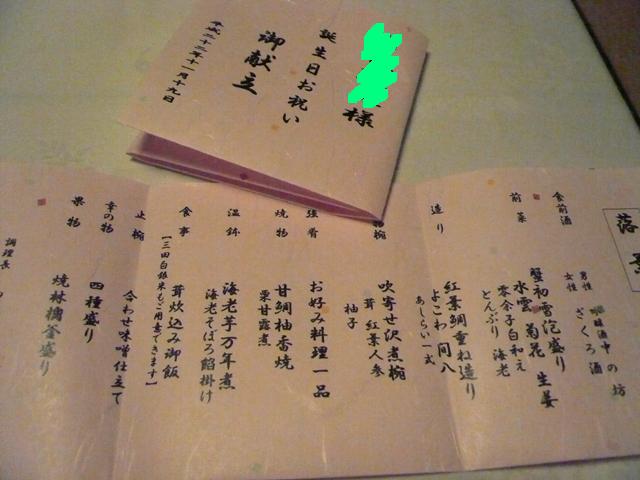 様
誕生日お祝い
御献立
平成二十二年十一月十九日
落
中の坊
食前酒
男性
女性 ざくろ酒
前菜
蟹初雪泡盛り
水雲 菊花 生姜
零余子白和え
とんぶり 海老
造り
紅葉鯛重ね造り
よこわ 間八
あしらい一式
椀
吹寄せ沢煮椀
茸 紅葉人参
柚子
強肴
お好み料理一品
焼物
甘鯛柚香焼
栗甘露煮
温鉢
海老芋万年煮
海老そぼろ餡掛け
食事
茸炊込み御飯
【三田白銀米もご用意できます】
止椀
合わせ味噌仕立て
幸の物
四種盛り
果物
焼林檎釜盛り
調理長